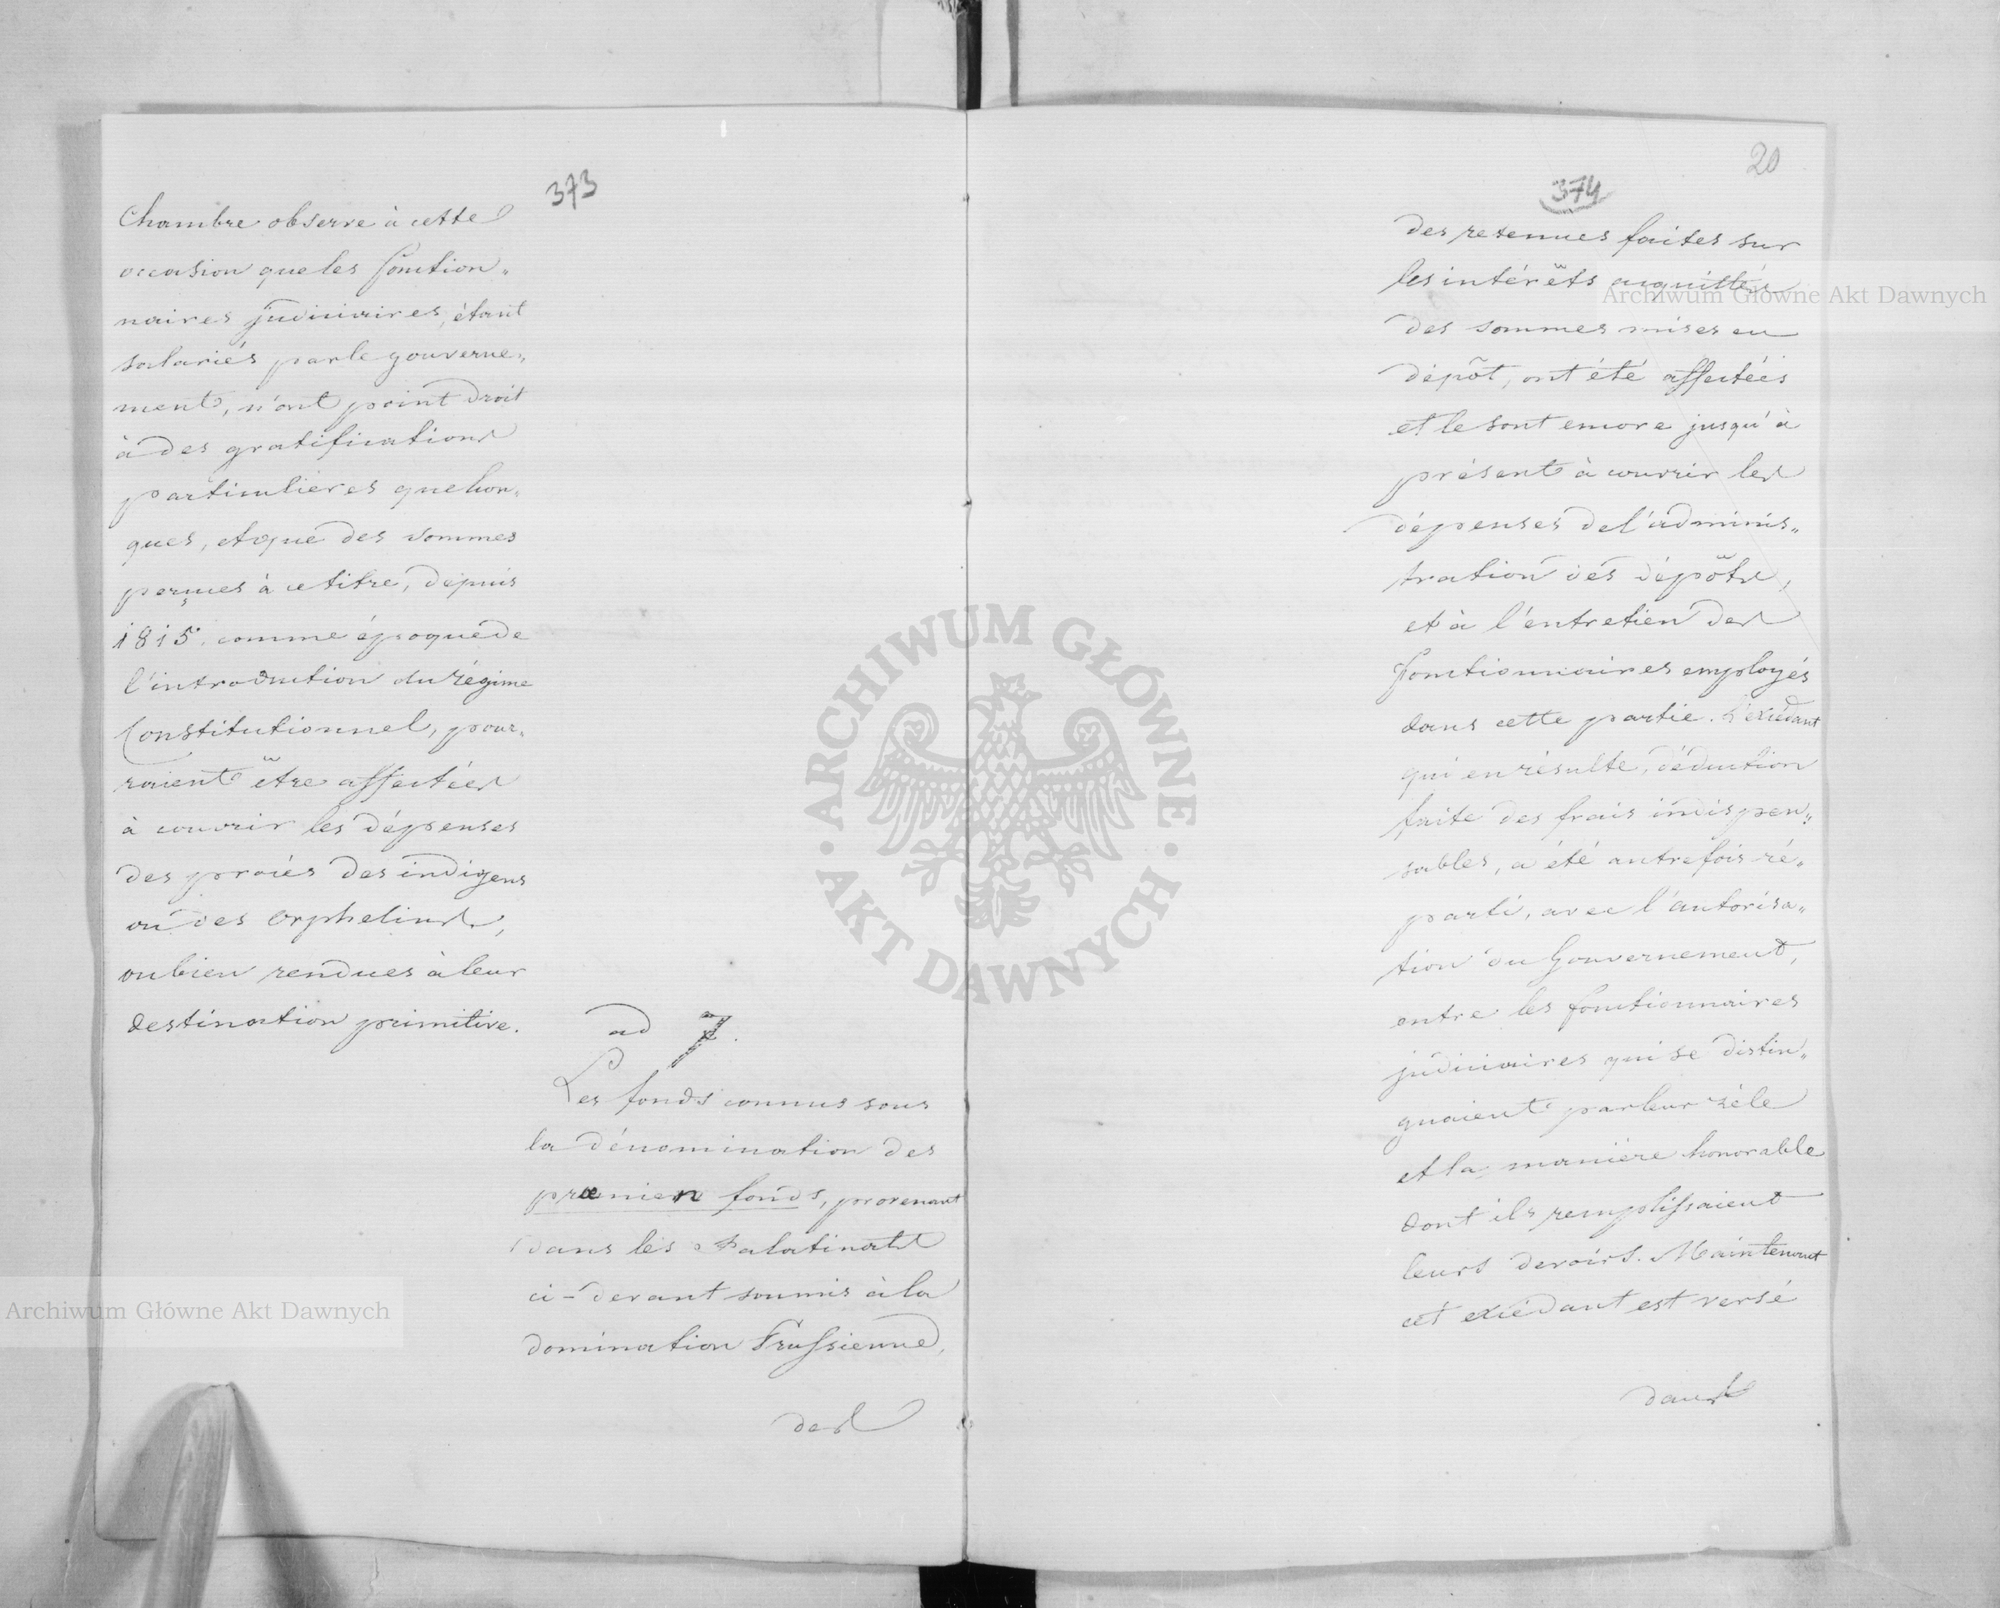 373
Chambre observe à cette
occasion que les fonction„
naires judiciaires, étant
salariés par le gouverne„
ment, n'ont point droit
à des gratifications
particulieres quelcon„
ques, et que des sommes
perçues à ce titre, depuis
1815. comme époque de
l'introduction du régime
Constitutionnel, pour„
raient être affectées
à couvrir les dépenses
des procés des indigens
ou des orphelins,
ou bien rendues à leur
destination primitive.
ad 7.
Les fonds connus sous
la dénomination des
præmien fonds, provenant
dans les Palatinats
ci-devant soumis à la
domination Prussienne,
des
20
374
des retenues faites sur
les intérêts acquittés
des sommes mises en
dépôt, ont été affectées
et le sont encore jusqu'à
présent à couvrir les
dépenses de l'adminis„
tration des dépôts,
et à l'entretien des
fonctionnaires employés
dans cette partie. L'excédant
qui en résulte, déduction
faite des frais indispen„
sables, a été autrefois ré„
parti, avec l'autorisa„
tion du Gouvernement,
entre les fonctionnaires
judiciaires qui se distin„
guaient par leur zèle
et la maniere honorable
dont ils remplissaient
leurs devoirs. Maintenant
cet excédant est versé
dans
Archiwum Główne Akt Dawnych
Archiwum Główne Akt Dawnych
ARCHIWUM GŁÓWNE · AKT DAWNYCH ·